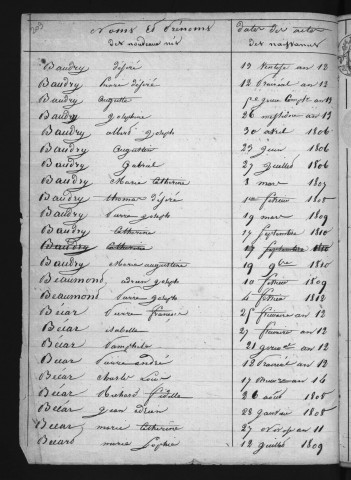 Noms et Prénoms des nouveaux nés
Dates des actes des naissances
Baudry désiré 13 Ventose an 12
Baudry Pierre désiré 12 Prairial an 12
Baudry Auguste
Baudry Zephirine 26 messidor an 13
Baudry albert joseph 30 avril 1806
Baudry Augustin 23 juin 1806
Baudry Gabriel 27 juillet 1806
Baudry Marie Catherine 3 mars 1807
Baudry thomas désiré 1808
Baudry Pierre joseph 19 mars 1809
Baudry Catherine 17 Septembre 1810
Baudry Catherine 17 Septembre 1810
Baudry Marie augustine 19 9bre 1810
Beaumond, adrien joseph 10 fevrier 1809
Beaumond Pierre joseph 4 fevrier 1812
Béar Pierre francois 25 frimaire an 12
Béar Isabelle 27 frimaire an 12
Béar Pamphile 21 germal an 12
Béar Pierre andré 12 Prairial an 12
Béar Charle Louis 17 an 14
Béar Richard fidelle 26 août 1808
Béar jean adrien 28 janvier 1808
Béar marie Catherine 27 an 11
Béard marie Sophie 12 juillet 1809